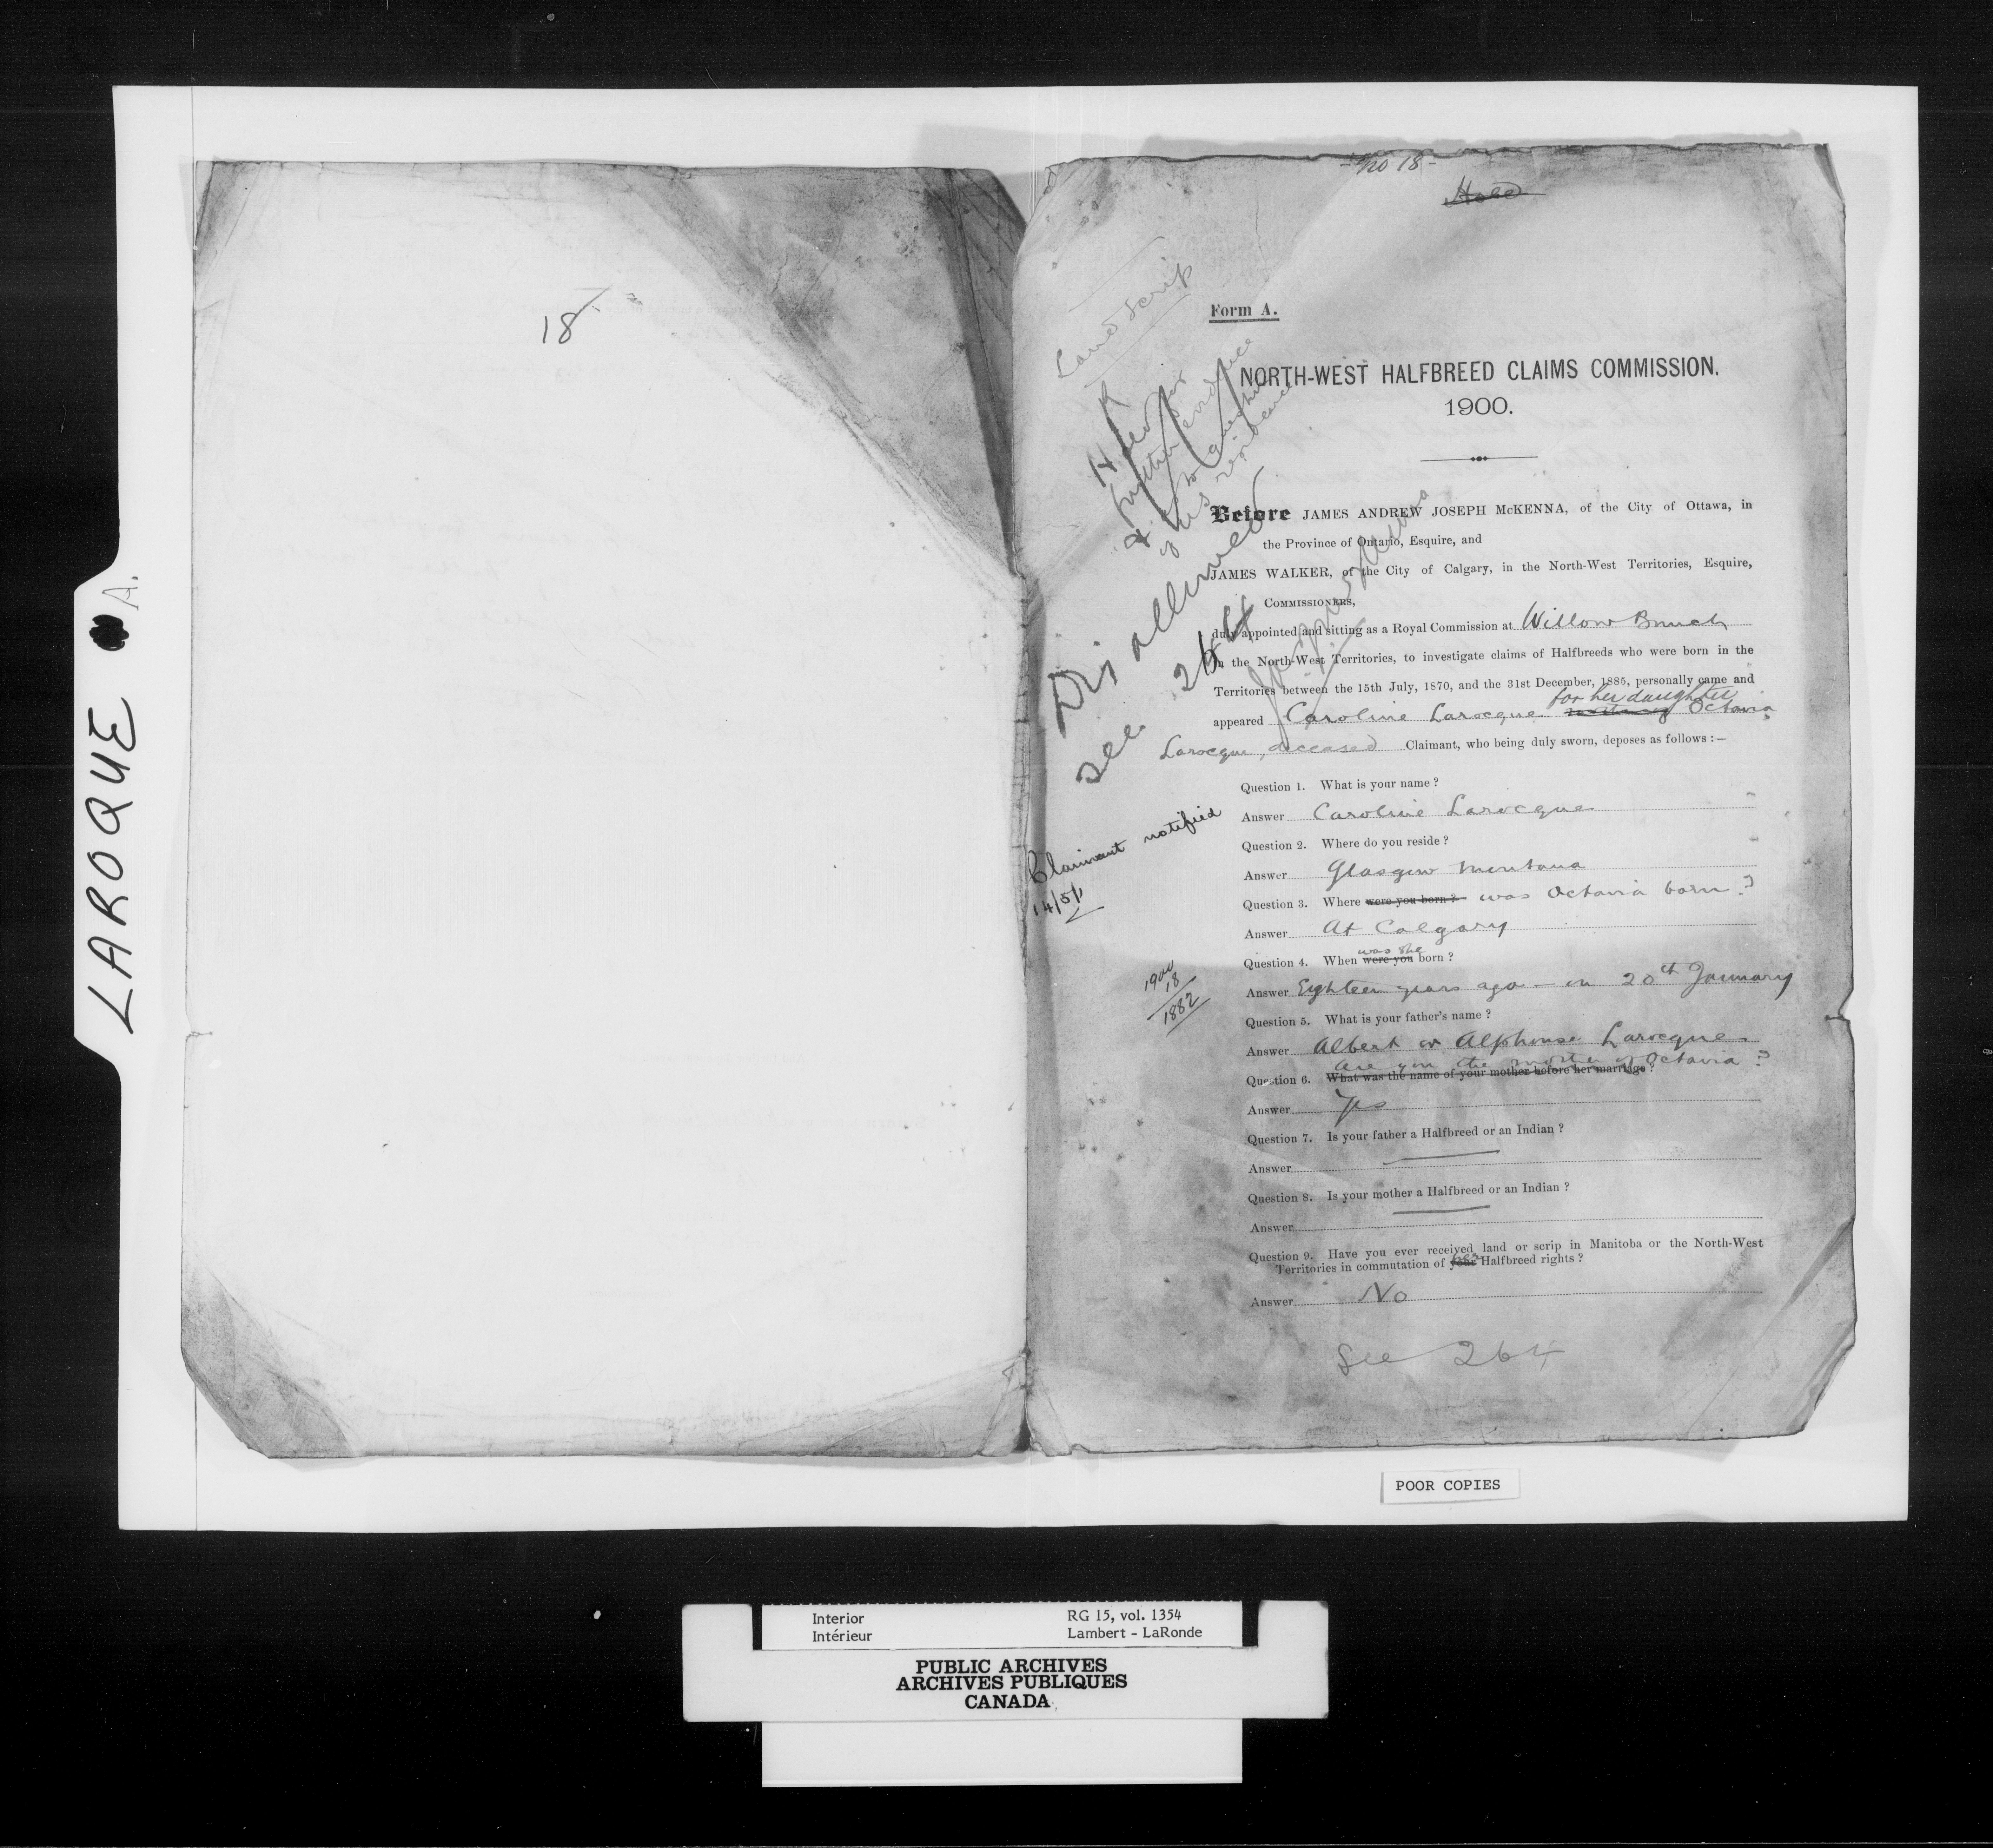 LAROQUE A.
18
- No 18 -
Hold
Land Scrip
Form A.
Held for
further evidence
& as to question
of his residence
NORTH-WEST HALFBREED CLAIMS COMMISSION.
1900.
Disallowed
see 264
J.A.J. McKenna
Before JAMES ANDREW JOSEPH McKENNA, of the City of Ottawa, in
the Province of Ontario, Esquire, and
JAMES WALKER, of the City of Calgary, in the North-West Territories, Esquire,
COMMISSIONERS,
duly appointed and sitting as a Royal Commission at Willow Bunch
in the North-West Territories, to investigate claims of Halfbreeds who were born in the
Territories between the 15th July, 1870, and the 31st December, 1885, personally came and
for her daughter
appeared Caroline Larocque Octavia
Larocque, deceased Claimant, who being duly sworn, deposes as follows :—
Question 1. What is your name ?
Answer Caroline Larocque
Claimant notified
14/5/1
Question 2. Where do you reside ?
Answer Glasgow Montana
Question 3. Where were you born ? was Octavia born ?
Answer At Calgary
was she
Question 4. When were you born ?
1900
18
1882
Answer Eighteen years ago - on 20th January
Question 5. What is your father's name ?
Answer Albert or Alphonse Larocque
are you the mother of Octavia ?
Question 6. What was the name of your mother before her marriage ?
Answer Yes
Question 7. Is your father a Halfbreed or an Indian ?
Answer
Question 8. Is your mother a Halfbreed or an Indian ?
Answer
Question 9. Have you ever received land or scrip in Manitoba or the North-West
Territories in commutation of your her Halfbreed rights ?
Answer No
See 264
POOR COPIES
Interior RG 15, vol. 1354
Intérieur Lambert - LaRonde
PUBLIC ARCHIVES
ARCHIVES PUBLIQUES
CANADA